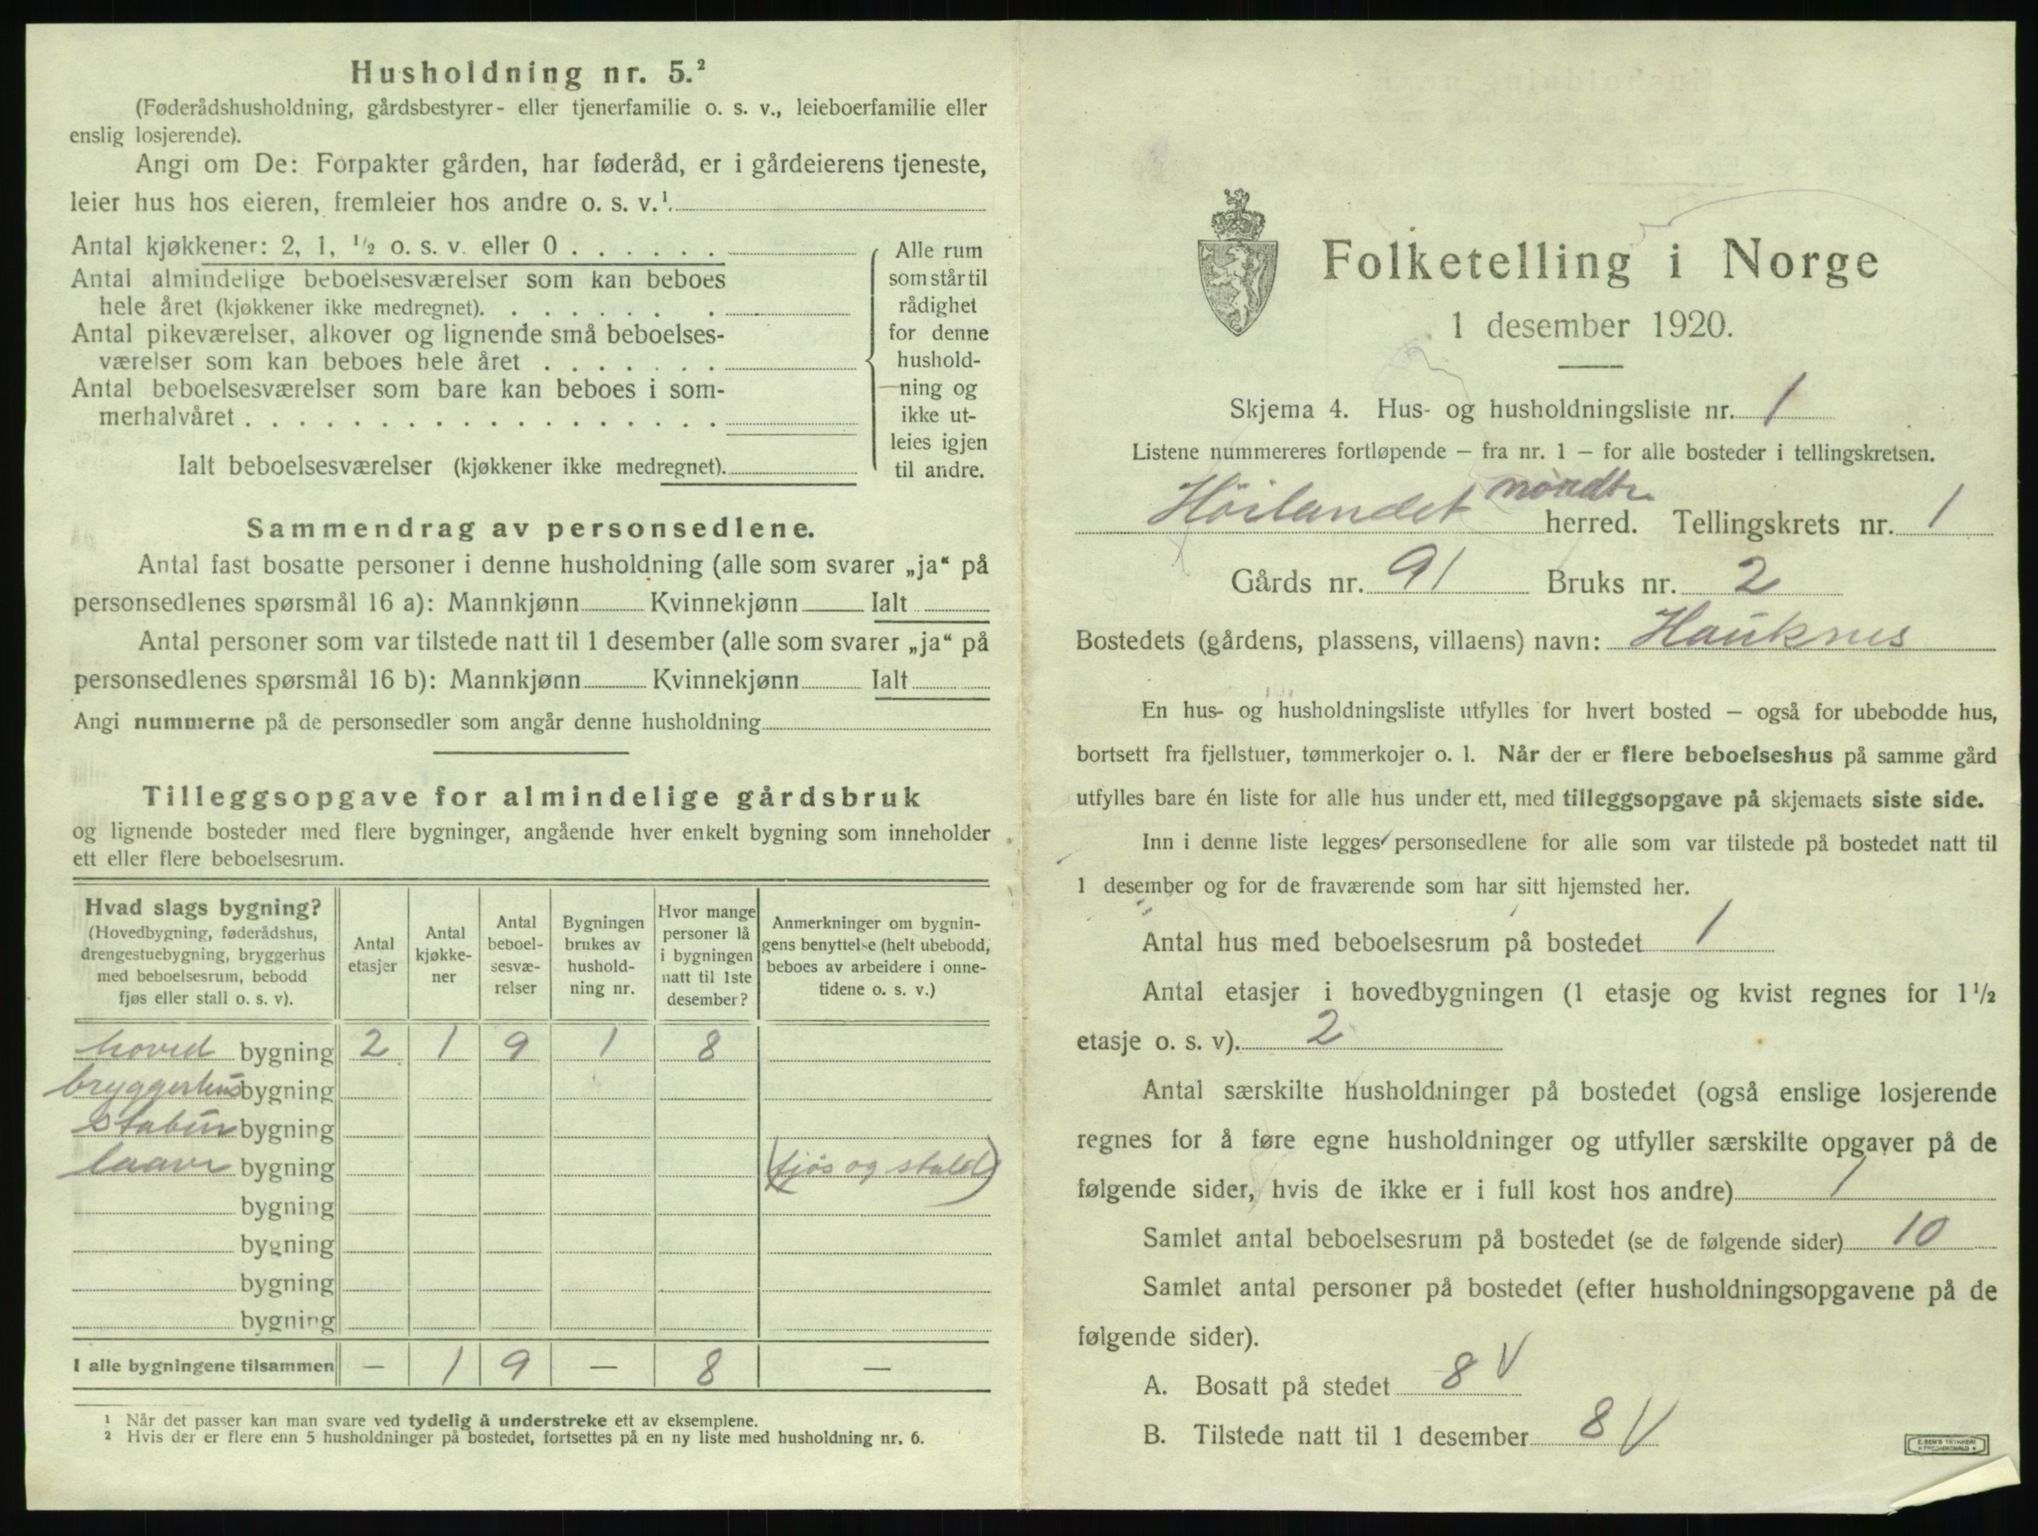 Husholdning nr. 5.²
(Føderådshusholdning, gårdsbestyrer- eller tjenerfamilie o. s. v., leieboerfamilie eller
enslig losjerende).
Angi om De: Forpakter gården, har føderåd, er i gårdeierens tjeneste,
leier hus hos eieren, fremleier hos andre o. s. v.¹
Antal kjøkkener: 2, 1, ½ o. s. v. eller 0 . . . . . .
Antal almindelige beboelsesværelser som kan beboes
hele året (kjøkkener ikke medregnet). . . . . . . .
Antal pikeværelser, alkover og lignende små beboelses-
værelser som kan beboes hele året . . . . . . .
Antal beboelsesværelser som bare kan beboes i som-
merhalvåret . . . . . . . . . . . . . . . . . .
Ialt beboelsesværelser (kjøkkener ikke medregnet).
Alle rum
som står til
rådighet
for denne
hushold-
ning og
ikke ut-
leies igjen
til andre.
Sammendrag av personsedlene.
Antal fast bosatte personer i denne husholdning (alle som svarer „ja“ på
personsedlenes spørsmål 16 a): Mannkjønn Kvinnekjønn Ialt
Antal personer som var tilstede natt til 1 desember (alle som svarer „ja“ på
personsedlenes spørsmål 16 b): Mannkjønn Kvinnekjønn Ialt
Angi nummerne på de personsedler som angår denne husholdning
Tilleggsopgave for almindelige gårdsbruk
og lignende bosteder med flere bygninger, angående hver enkelt bygning som inneholder
ett eller flere beboelsesrum.
Hvad slags bygning?
(Hovedbygning, føderådshus,
drengestuebygning, bryggerhus
med beboelsesrum, bebodd
fjøs eller stall o. s. v).
Antal
etasjer
Antal
kjøkke-
ner
Antal
beboel-
sesvæ-
relser
Bygningen
brukes av
hushold-
ning nr.
Hvor mange
personer lå
i bygningen
natt til 1ste
desember?
Anmerkninger om bygnin-
gens benyttelse (helt ubebodd,
beboes av arbeidere i onne-
tidene o. s. v.)
hoved bygning 2 1 9 1 8
bryggerhus bygning
stabur bygning
laave bygning (fjøs og stald)
bygning
bygning
bygning
bygning
I alle bygningene tilsammen — 1 9 — 8 —
¹ Når det passer kan man svare ved tydelig å understreke ett av eksemplene.
² Hvis der er flere enn 5 husholdninger på bostedet, fortsettes på en ny liste med husholdning nr. 6.
Folketelling i Norge
1 desember 1920.
Skjema 4. Hus- og husholdningsliste nr. 1
Listene nummereres fortløpende – fra nr. 1 – for alle bosteder i tellingskretsen.
Höilandet nordtr herred. Tellingskrets nr. 1
Gårds nr. 91 Bruks nr. 2
Bostedets (gårdens, plassens, villaens) navn: Hauknes
En hus- og husholdningsliste utfylles for hvert bosted – også for ubebodde hus,
bortsett fra fjellstuer, tømmerkojer o. l. Når der er flere beboelseshus på samme gård
utfylles bare én liste for alle hus under ett, med tilleggsopgave på skjemaets siste side.
Inn i denne liste legges personsedlene for alle som var tilstede på bostedet natt til
1 desember og for de fraværende som har sitt hjemsted her.
Antal hus med beboelsesrum på bostedet 1
Antal etasjer i hovedbygningen (1 etasje og kvist regnes for 1½
etasje o. s. v). 2
Antal særskilte husholdninger på bostedet (også enslige losjerende
regnes for å føre egne husholdninger og utfyller særskilte opgaver på de
følgende sider, hvis de ikke er i full kost hos andre) 1
Samlet antal beboelsesrum på bostedet (se de følgende sider) 10
Samlet antal personer på bostedet (efter husholdningsopgavene på de
følgende sider).
A. Bosatt på stedet 8 V
B. Tilstede natt til 1 desember 8 V